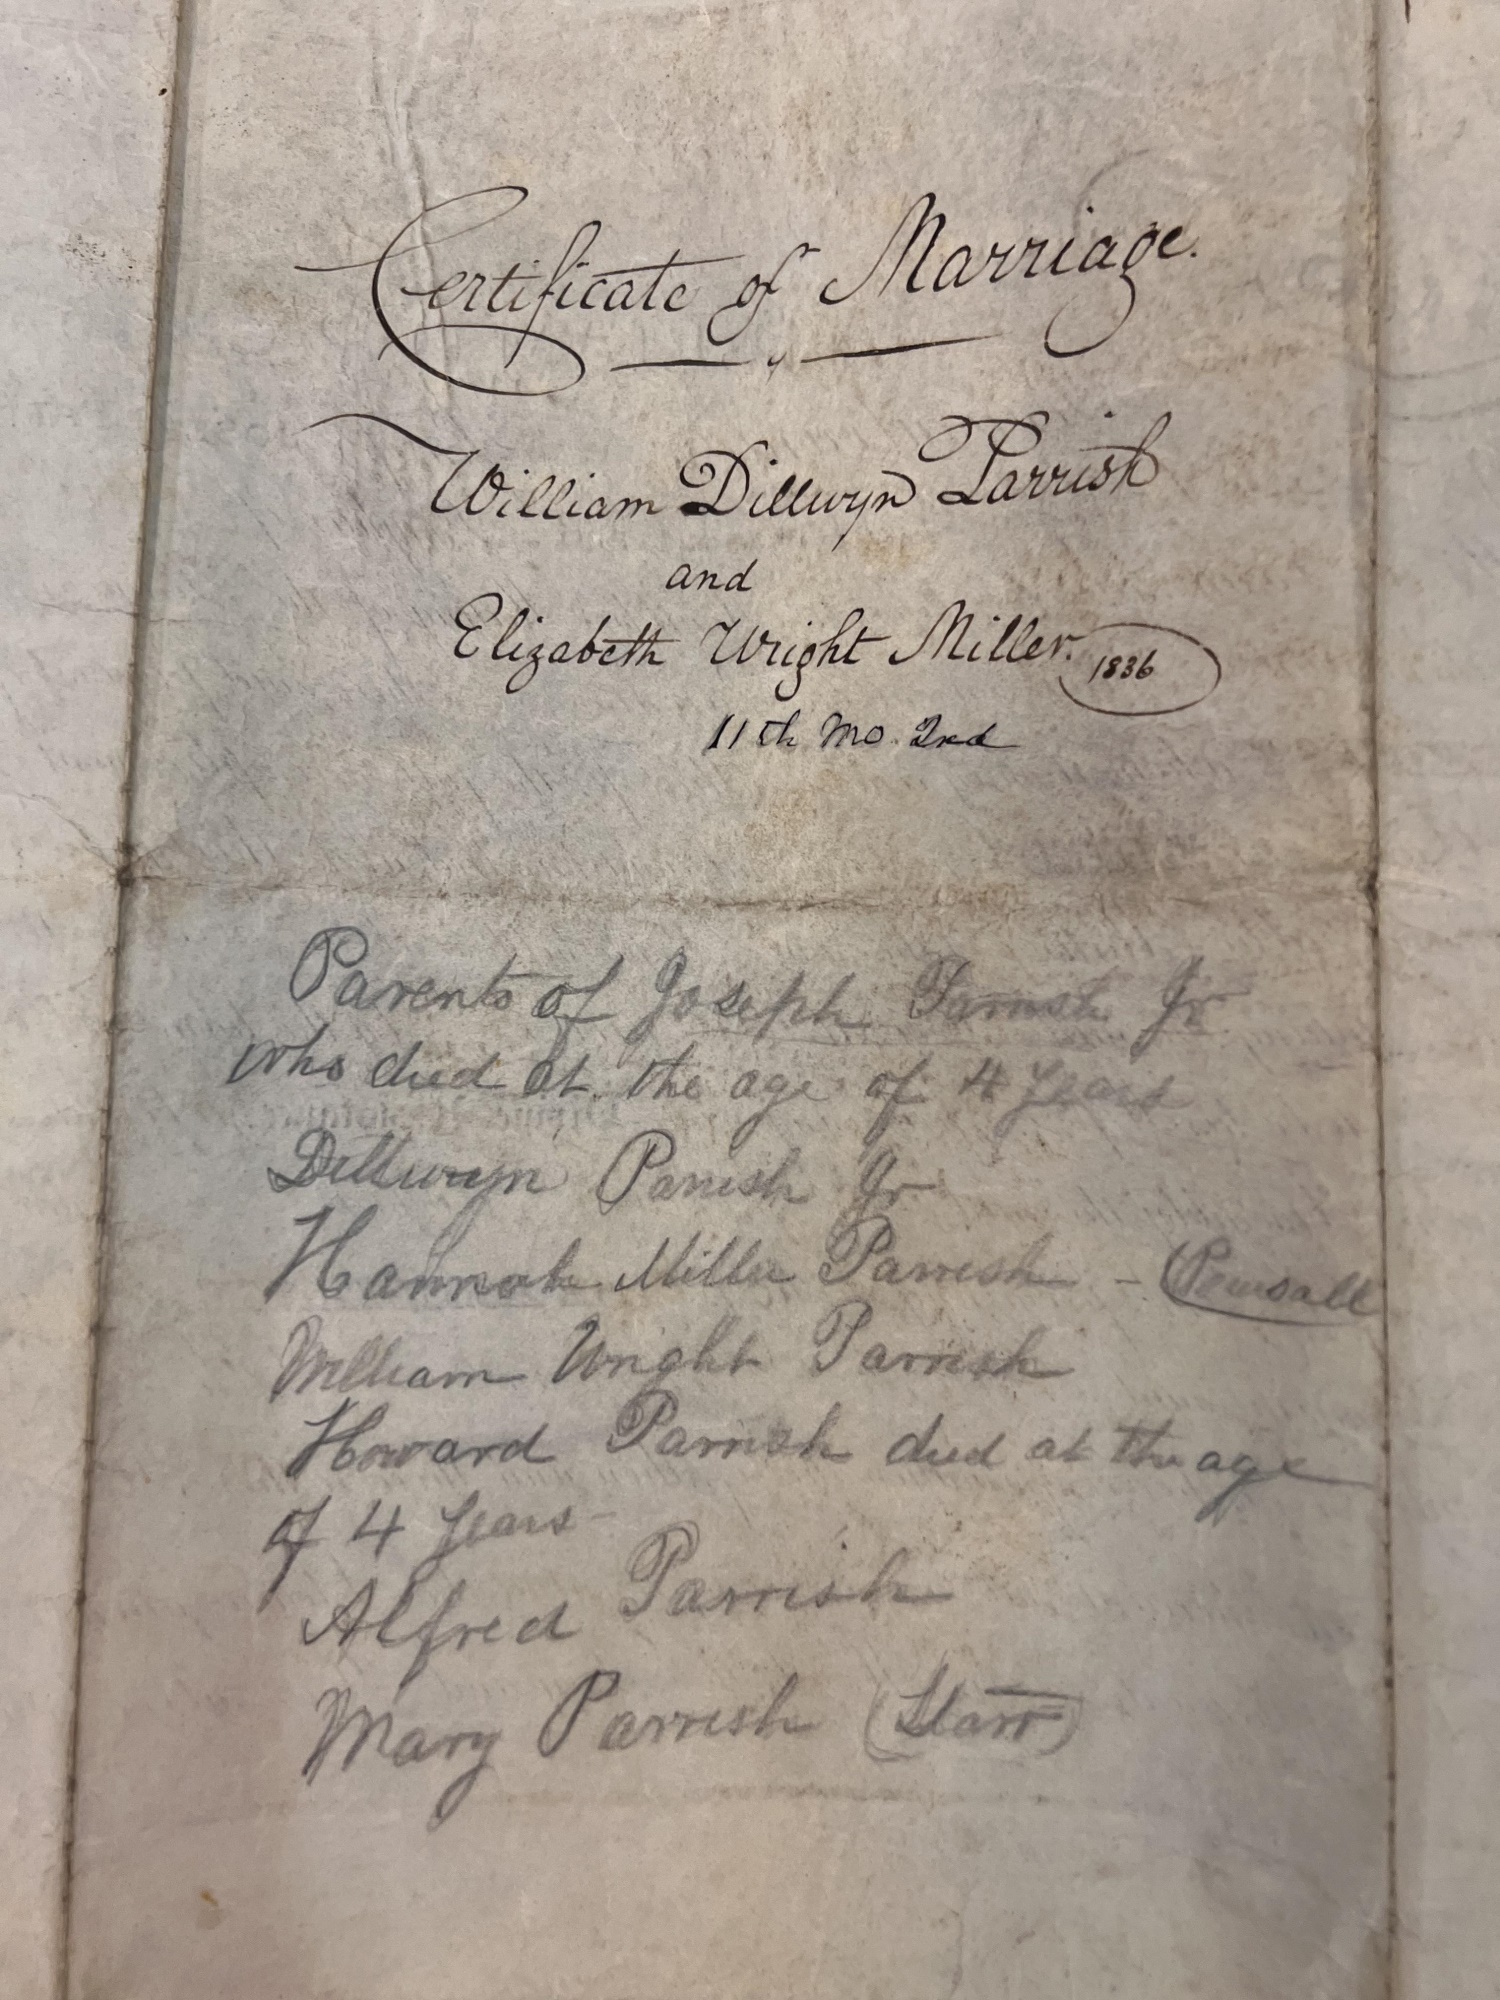 Certificate of Marriage.
William Dillwyn Parrish
and
Elizabeth Wright Miller. 1836
11th Mo. 2nd
Parents of Joseph Parrish Jr
who died at the age of 4 years
Dillwyn Parrish Jr
Hannah Miller Parrish - (Pearsall
William Wright Parrish
Howard Parrish died at the age
of 4 years-
Alfred Parrish
Mary Parrish (Starr)